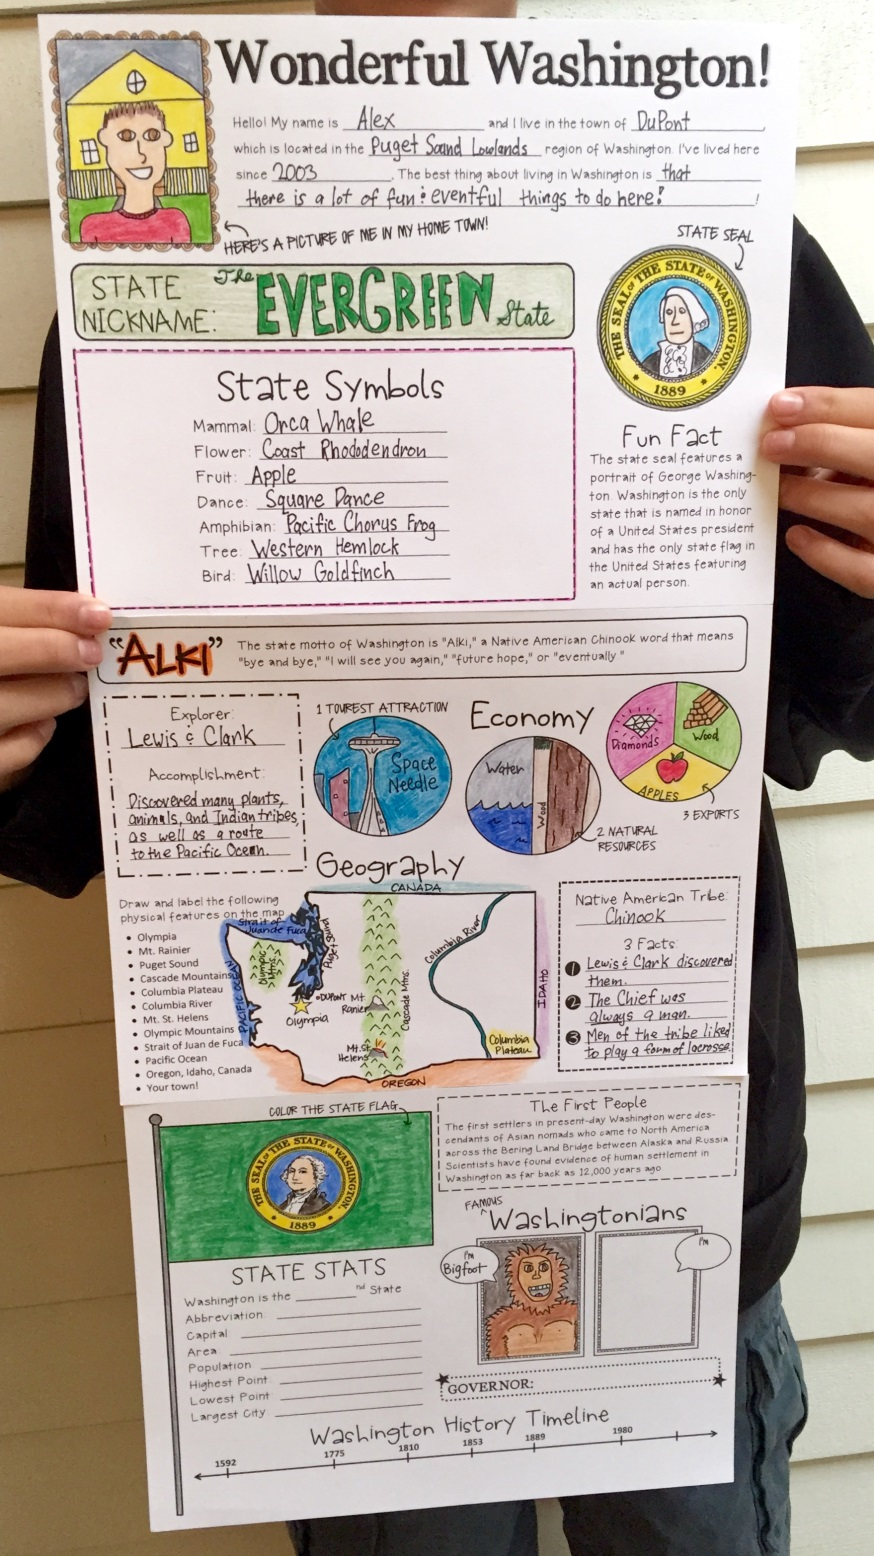 Wonderful Washington!
Hello! My name is Alex and I live in the town of DuPont,
which is located in the Puget Sound Lowlands region of Washington. I've lived here
since 2003. The best thing about living in Washington is that
there is a lot of fun & eventful things to do here!!
HERE'S A PICTURE OF ME IN MY HOME TOWN!
STATE SEAL
STATE
NICKNAME:
The EVERGREEN State
THE SEAL OF THE STATE OF WASHINGTON
1889
State Symbols
Mammal: Orca Whale
Flower: Coast Rhododendron
Fruit: Apple
Dance: Square Dance
Amphibian: Pacific Chorus Frog
Tree: Western Hemlock
Bird: Willow Goldfinch
Fun Fact
The state seal features a
portrait of George Washing-
ton. Washington is the only
state that is named in honor
of a United States president
and has the only state flag in
the United States featuring
an actual person.
"ALKI"
The state motto of Washington is "Alki," a Native American Chinook word that means
"bye and bye," "I will see you again," "future hope," or "eventually"
Explorer:
Lewis & Clark
Accomplishment:
Discovered many plants,
animals, and Indian tribes,
as well as a route
to the Pacific Ocean.
1 TOUREST ATTRACTION
Space
Needle
Economy
Water
Wood
2 NATURAL
RESOURCES
Diamonds
Wood
APPLES
3 EXPORTS
Geography
Draw and label the following
physical features on the map
• Olympia
• Mt. Rainier
• Puget Sound
• Cascade Mountains
• Columbia Plateau
• Columbia River
• Mt. St. Helens
• Olympic Mountains
• Strait of Juan de Fuca
• Pacific Ocean
• Oregon, Idaho, Canada
• Your town!
CANADA
Strait of
Juan de Fuca
Puget Sound
Olympic
Mtns.
PACIFIC OCEAN
DUPONT
Olympia
Mt.
Ranier
Cascade Mtns.
Mt. St.
Helens
Columbia River
Columbia
Plateau
IDAHO
OREGON
Native American Tribe:
Chinook
3 Facts
1 Lewis & Clark discovered
them.
2 The Chief was
always a man.
3 Men of the tribe liked
to play a form of lacrosse.
COLOR THE STATE FLAG
THE SEAL OF THE STATE OF WASHINGTON
1889
The First People
The first settlers in present-day Washington were des-
cendants of Asian nomads who came to North America
across the Bering Land Bridge between Alaska and Russia
Scientists have found evidence of human settlement in
Washington as far back as 12,000 years ago
FAMOUS
Washingtonians
I'm
Bigfoot
I'm
STATE STATS
Washington is the nd State
Abbreviation
Capital
Area
Population
Highest Point
Lowest Point
Largest City
GOVERNOR:
Washington History Timeline
1592 1775 1810 1853 1889 1980